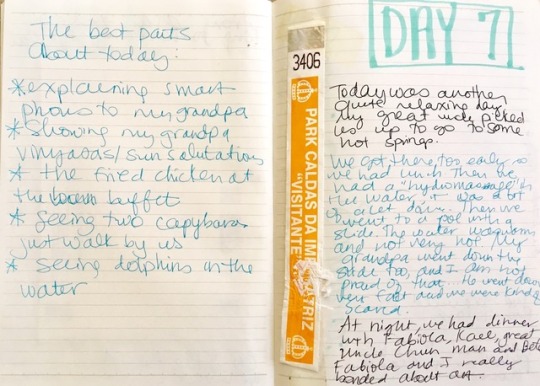 The best parts
about today:
*explaining smart
phones to my grandpa
*showing my grandpa
vinyasas/sun salutations
* the fried chicken at
the buffet
* seeing two capybaras
just walk by us
* seeing dolphins in the
water
3406
PARK CALDAS DA IMPERATRIZ
"VISITANTE"
DAY 7
Today was another
quite relaxing day,
my great uncle picked
us up to go to some
hot springs.
We got there too early so
we had lunch then we
had a "hydromassage" in
the water, it was a bit
of a let down. Then we
went to a pool with a
slide. The water was warm
and not very hot. My
grandpa went down the
slide too, and I am not
proud of that... He went down
very fast and we were kind of
scared.
At night, we had dinner
with Fabiola, Kael, great
uncle Chun man and Beto
Fabiola and I really
bonded about art.